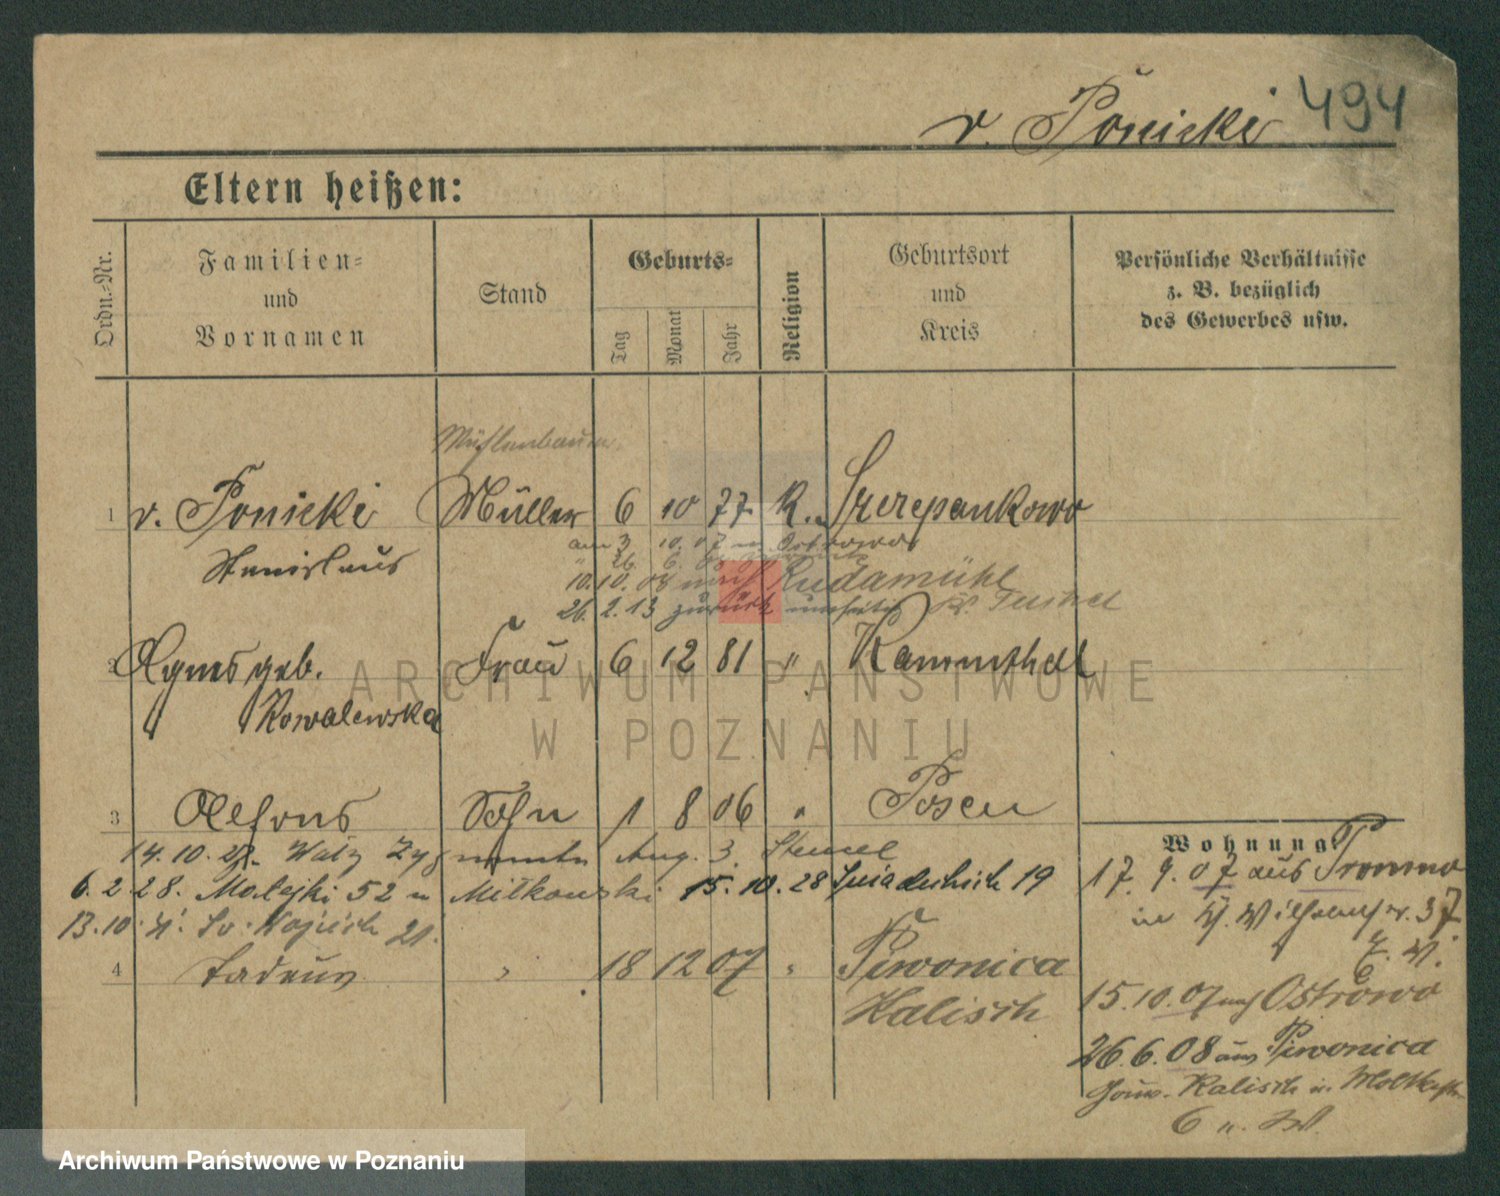 v. Ponicki 494
Eltern heißen:
Ordn.-Nr.
Familien-
und
Vornamen
Stand
Geburts-
Tag
Monat
Jahr
Religion
Geburtsort
und
Kreis
Persönliche Verhältnisse
z. B. bezüglich
des Gewerbes usw.
Mühlenbauer
1 v. Ponicki Müller 6 10 77 K. Szczepankowo
Stanislaus
am 3 10. 07 n Ostrowo
26. 6. 08
10. 10. 08 nach Rudamühl
26. 2. 13 zurück
2 Agnes geb. Frau 6 12 81 " Kammthal
Kowalewska
ARCHIWUM PAŃSTWOWE
W POZNANIU
3 Alfons Sohn 1 8 06 " Posen
14. 10. Wały Zygmunta Aug. 3.
6. 2 28. 52 Miłkowski 15. 10. 28 Śniadeckich 19
13. 10. Św. Wojciech 21.
4 Tadeus " 18 12 07 " Piwonica
Kalisch
Wohnung:
17. 9. 07 aus
in 37
15. 10. 07 nach Ostrowo
26. 6. 08 aus Piwonica
Gouv. Kalisch in Moltkestr.
6
Archiwum Państwowe w Poznaniu